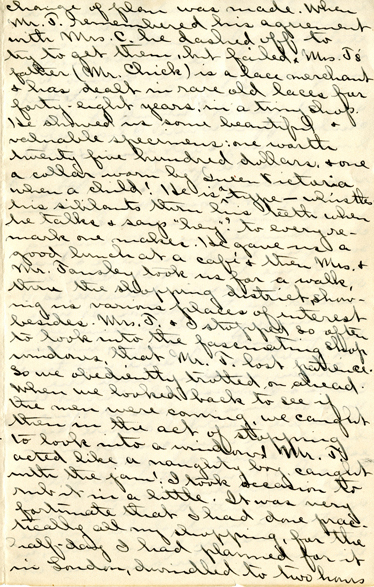 change of plan was made. When
Mr. T. remembered his agreement
with Mrs. C. he dashed off to
try to get them but failed. Mrs. T's
father (Mr. Chick) is a lace merchant
& has dealt in rare old laces for
forty-eight years in a tiny shop.
He showed us some beautiful &
valuable specimens: one worth
twenty five hundred dollars, & one
a collar worn by Queen Victoria
when a child! He is a type - whistles
his sibilants thru his teeth when
he talks & says "hey"? to every re-
mark one makes. He gave us a
good lunch at a café & then Mrs. &
Mr. Tansley took us for a walk,
thru the shopping district, show-
ing us various places of interest
besides. Mrs. T. & I stopped so often
to look into the fascinating shop
windows, that Mr. T. lost patience.
So we obediently trotted on ahead.
When we looked back to see if
the men were coming, we caught
them in the act of stopping
to look into a window! Mr. T.
acted like a naughty boy caught
with the jam! I took occasion to
rub it in a little. It was very
fortunate that I had done prac-
tically all my shopping, for the
half-day I had planned for it
in London, dwindled to two hours